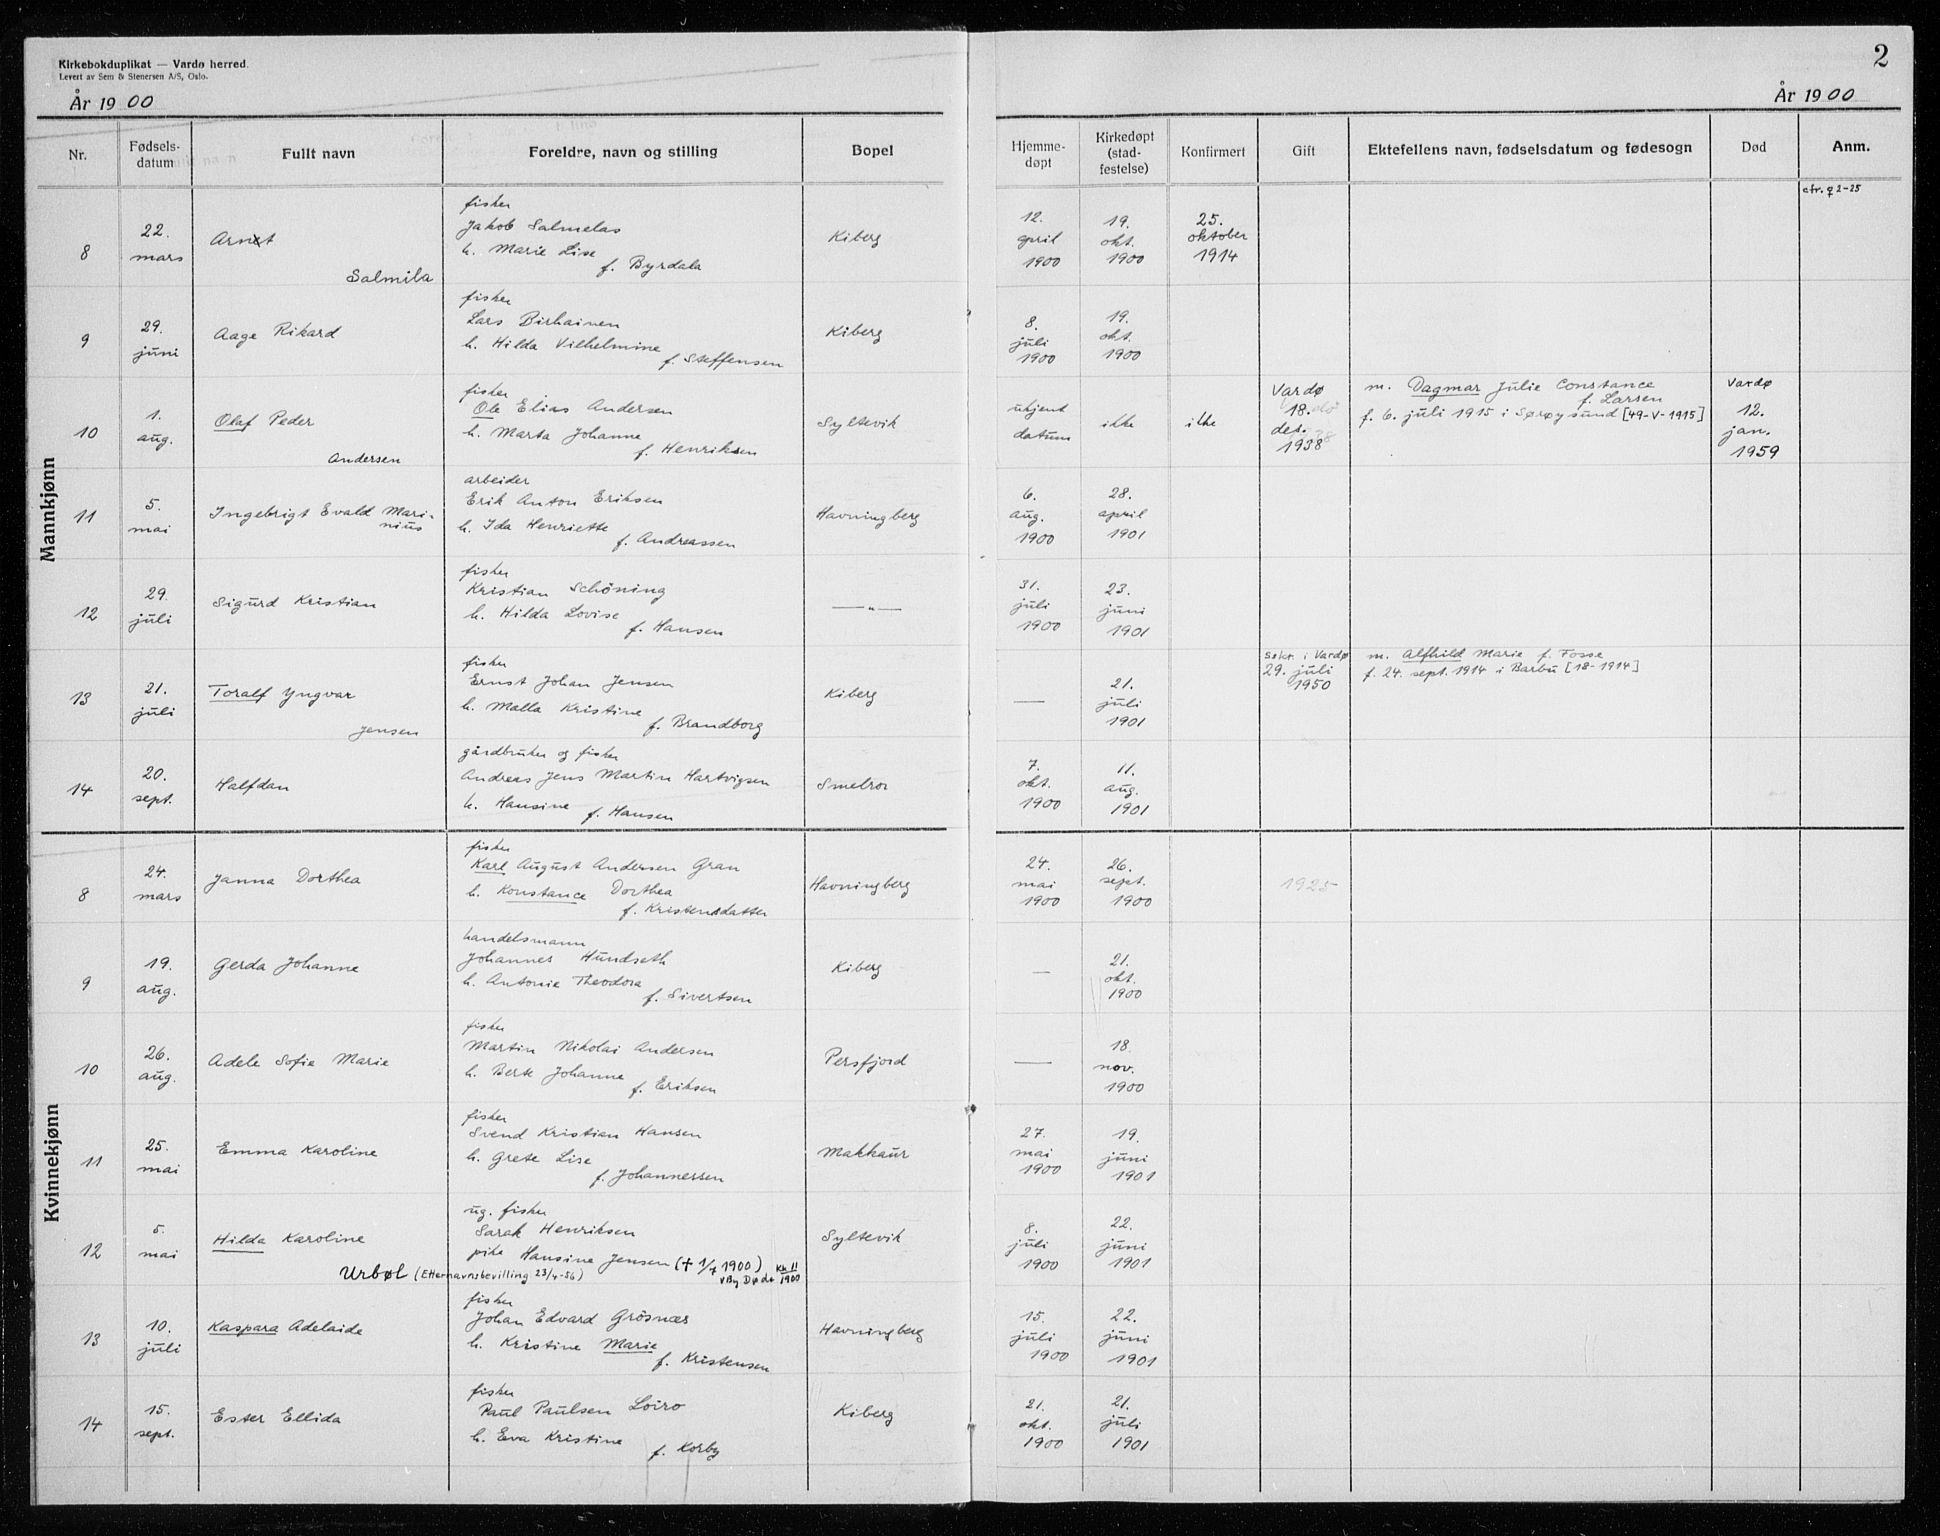 Kirkebokduplikat — Vardø herred.
Levert av Sem & Stenersen A/S, Oslo.
2
År 1900
År 1900
Nr.
Fødsels-
datum
Fullt navn
Foreldre, navn og stilling
Bopel
Hjemme-
døpt
Kirkedøpt
(stad-
festelse)
Konfirmert
Gift
Ektefellens navn, fødselsdatum og fødesogn
Død
Anm.
Mannkjønn
8
22.
mars
Arnt
Salmila
fisker
Jakob Salmelas
h. Marie Lise
f. Byrdala
Kiberg
12.
april
1900
19.
okt.
1900
25.
oktober
1914
cfr. ♀ 2-25
9
29.
juni
Aage Rikard
fisker
Lars Birhainen
h. Hilda Vilhelmine
f. Steffensen
Kiberg
8.
juli
1900
19.
okt.
1900
10
1.
aug.
Olaf Peder
Andersen
fisker
Ole Elias Andersen
h. Marta Johanne
f. Henriksen
Syltevik
ukjent
datum
ikke
ikke
Vardø
18.
des.
1938
m. Dagmar Julie Constance
f. Larsen
f. 6. juli 1915 i Sørøysund [49-V-1915]
Vardø
12.
jan.
1959
11
5.
mai
Ingebrigt Evald Mari-
nius
arbeider
Erik Anton Eriksen
h. Ida Henriette
f. Andreassen
Havningberg
6.
aug.
1900
28.
april
1901
12
29.
juli
Sigurd Kristian
fisker
Kristian Schöning
h. Hilda Lovise
f. Hansen
—„—
31.
juli
1900
23.
juni
1901
13
21.
juli
Toralf Yngvar
Jensen
fisker
Ernst Johan Jensen
h. Malla Kristine
f. Brandborg
Kiberg
—
21.
juli
1901
Sokr. i Vardø
29. juli
1950
m. Alfhild Marie f. Fosse
f. 24. sept. 1914 i Barbu [18-1914]
14
20.
sept.
Halfdan
gårdbruker og fisker
Andreas Jens Martin Hartvigsen
h. Hansine
f. Hansen
Smelror
7.
okt.
1900
11.
aug.
1901
Kvinnekjønn
8
24.
mars
Janna Dorthea
fisker
Karl August Andersen Gran
h. Konstance Dorthea
f. Kristensdatter
Havningberg
24.
mai
1900
26.
sept.
1900
1925
9
19.
aug.
Gerda Johanne
handelsmann
Johannes Hundseth
h. Antonie Theodora
f. Sivertsen
Kiberg
—
21.
okt.
1900
10
26.
aug.
Adele Sofie Marie
fisker
Martin Nikolai Andersen
h. Berte Johanne
f. Eriksen
Persfjord
—
18.
nov.
1900
11
25.
mai
Emma Karoline
fisker
Svend Kristian Hansen
h. Grete Lise
f. Johannessen
Makkaur
27.
mai
1900
19.
juni
1901
12
5.
mai
Hilda Karoline
Urbøl (Etternavnsbevilling 23/4-56)
ug. fisker
Sarak Henriksen
pike Hansine Jensen († 1/7 1900) Kk 11
v By Døde 1900
Syltevik
8.
juli
1900
22.
juni
1901
13
10.
juli
Kaspara Adelaide
fisker
Johan Edvard Grösnæs
h. Kristine Marie
f. Kristensen
Havningberg
15.
juli
1900
22.
juni
1901
14
15.
sept.
Ester Ellida
fisker
Paul Paulsen Loiro
h. Eva Kristine
f. Korby
Kiberg
21.
okt.
1900
21.
juli
1901